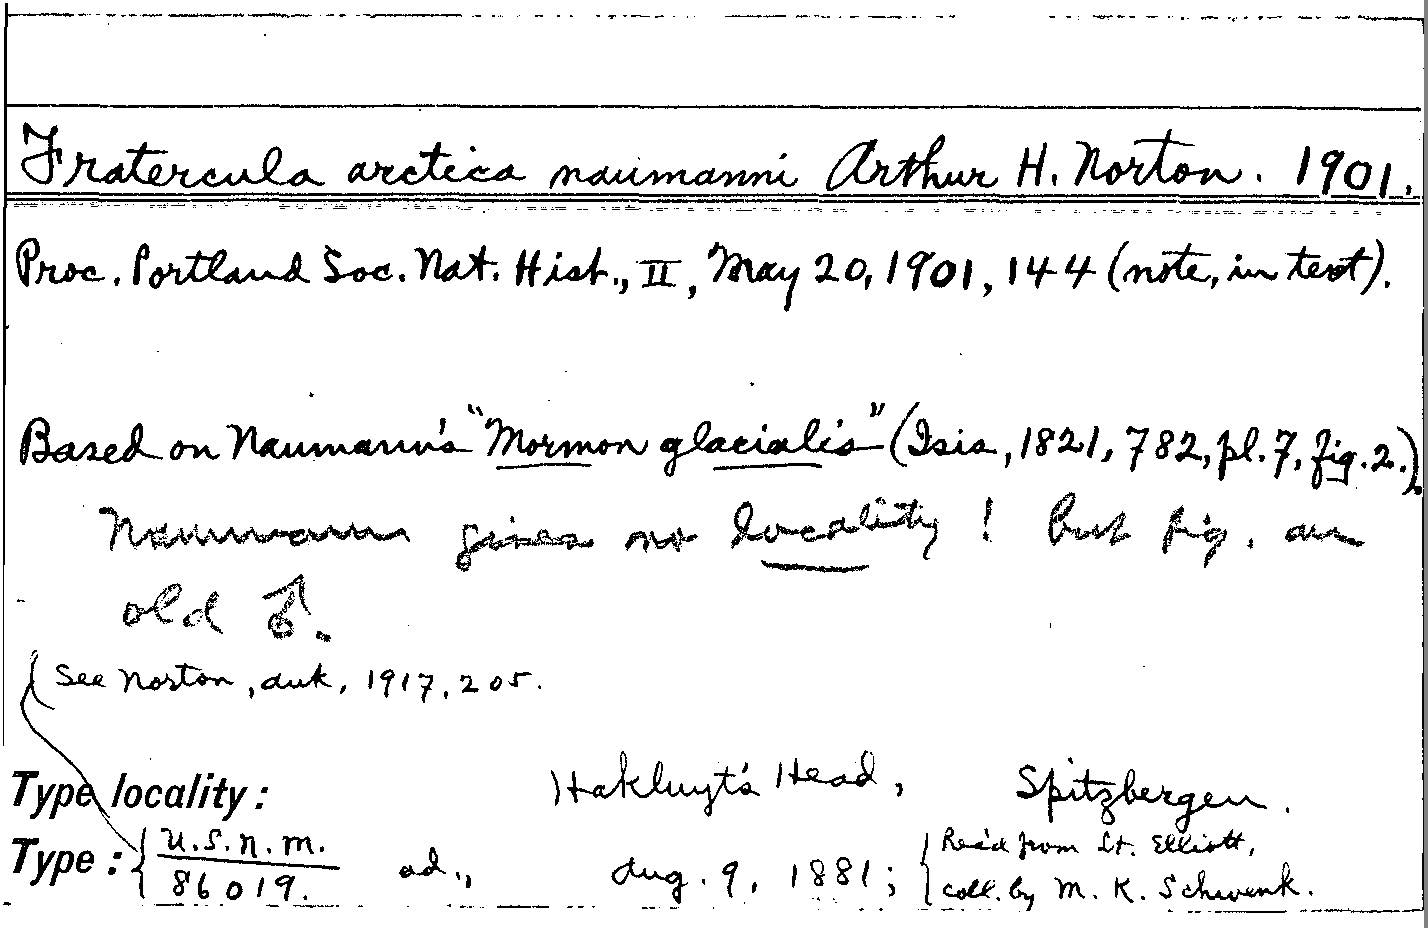 Fratercula arctica naumanni Arthur H. Norton. 1901.
Proc. Portland Soc. Nat. Hist., II, May 20, 1901, 144 (note, in text).
Based on Naumann's "Mormon glacialis" (Isis, 1821, 782, pl. 7, fig. 2.).
Naumann gives no locality! but fig. an
old ♂.
See Norton, Auk, 1917, 205.
Type locality: Hakluyt's Head, Spitzbergen.
Type: U.S.N.M. 86019. ad., Aug. 9, 1881; Rec'd from Lt. Elliott,
coll. by M. K. Schwenk.